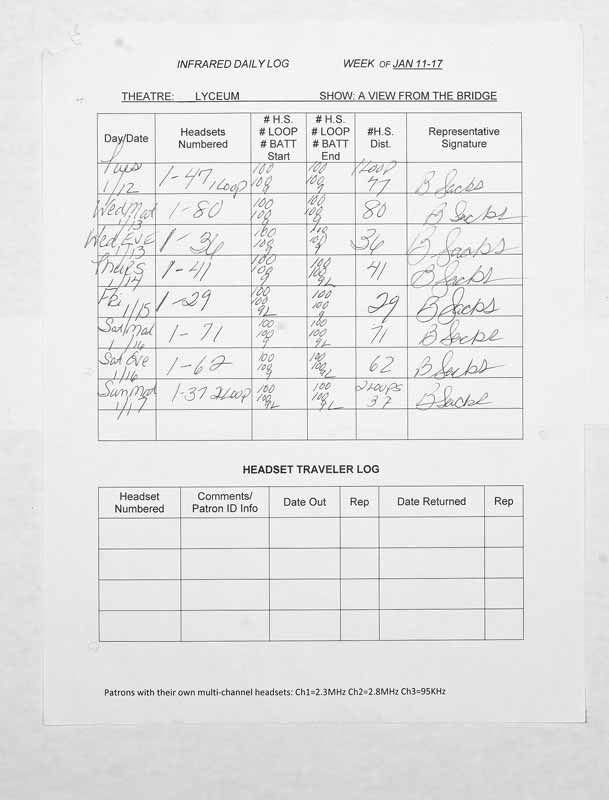 INFRARED DAILY LOG WEEK OF JAN 11-17
THEATRE: LYCEUM SHOW: A VIEW FROM THE BRIDGE
Day/Date Headsets Numbered # H.S. # LOOP # BATT Start # H.S. # LOOP # BATT End #H.S. Dist. Representative Signature
Tues 1/12 1-47 1 Loop 100 100 9 100 100 9 1 Loop 77 B Sacks
Wed Mat 1/13 1-80 100 100 9 100 100 9 80 B Sacks
Wed EVE 1/13 1-36 100 100 9 36 B Sacks
Thurs 1/14 1-41 100 100 9 100 100 9L 41 B Sacks
Fri 1/15 1-29 100 100 9L 100 100 9 29 B Sacks
Sat Mat 1/16 1-71 100 100 9 100 100 9L 71 B Sacks
Sat Eve 1/16 1-62 100 100 9 100 100 9L 62 B Sacks
Sun Mat 1/17 1-37 2 Loop 100 100 9L 100 100 9L 2 Loops 37 B Sacks
HEADSET TRAVELER LOG
Headset Numbered Comments/ Patron ID Info Date Out Rep Date Returned Rep
Patrons with their own multi-channel headsets: Ch1=2.3MHz Ch2=2.8MHz Ch3=95KHz